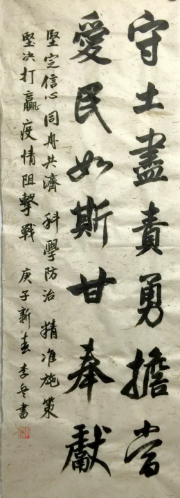 守土盡責勇擔當
愛民如斯甘奉獻
堅定信心同舟共濟 科學防治 精准施策
堅决打贏疫情阻擊戰 庚子新春 李兵書